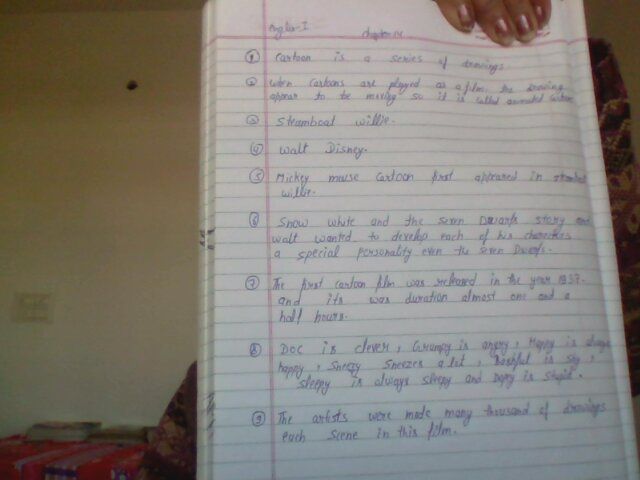 Anglia-I chapter 14
① Cartoon is a series of drawings.
② When Cartoons are played as a film, the drawing
appear to be moving so it is called animated cartoon
③ Steamboat willie.
④ Walt Disney.
⑤ Mickey mouse Cartoon first appeared in steamboat
willie.
⑥ Snow white and the seven Dwarfs story and
walt wanted to develop each of his characters
a special personality even the seven Dwarfs.
⑦ The first cartoon film was released in the year 1937.
and its was duration almost one and a
half hours.
⑧ Doc is clever, Grumpy is angry, Happy is always
happy, Sneezy Sneezes a lot, Bashful is shy,
sleepy is always sleepy and Dopy is stupid.
⑨ The artists were made many thousand of drawings
each scene in this film.